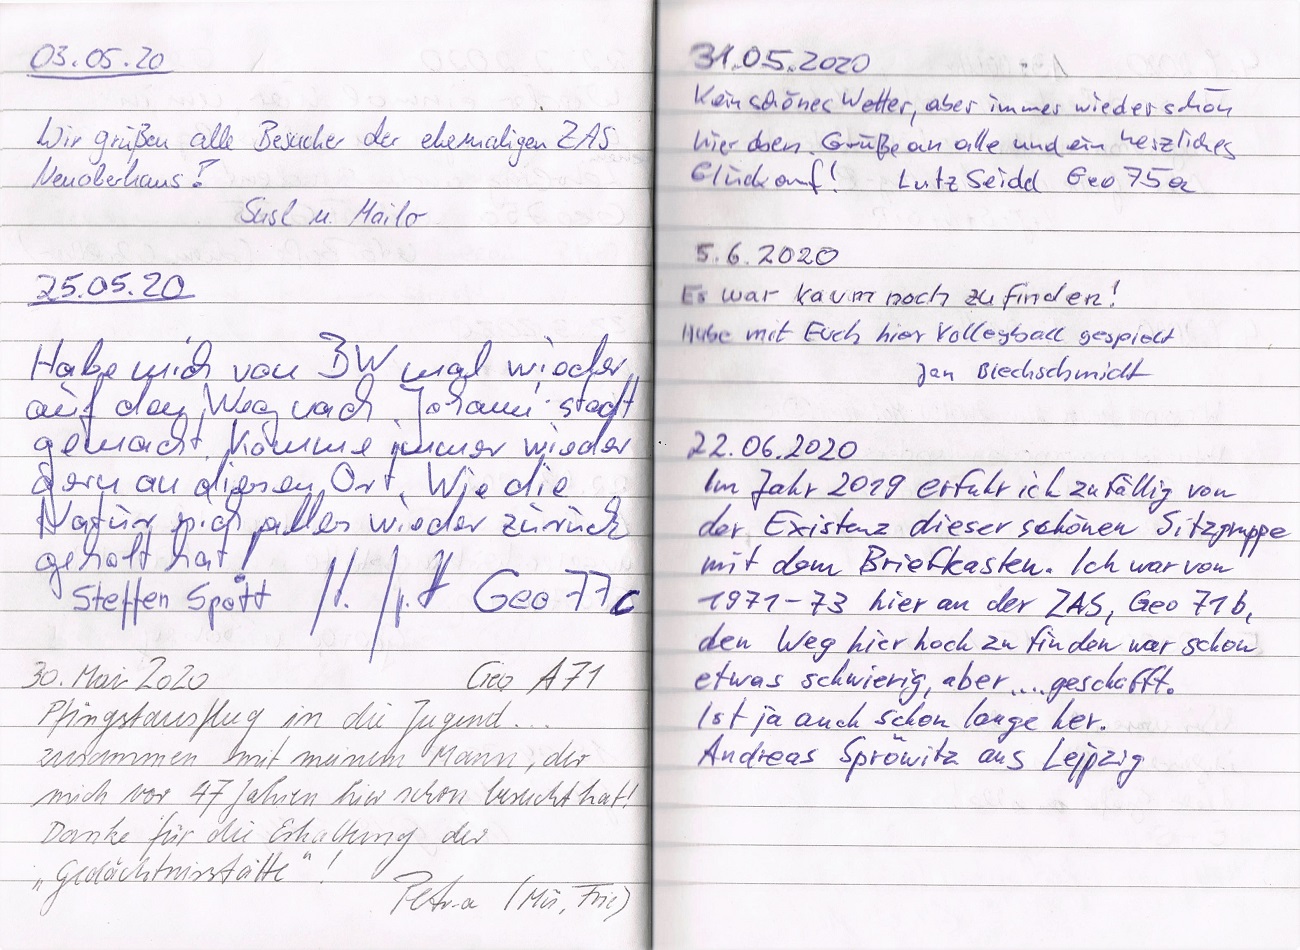 03.05.20
Wir grüßen alle Besucher der ehemaligen ZAS
Neuoberhaus!
Susl u. Mailo
25.05.20
Habe mich von BW mal wieder
auf den Weg nach Johann'stadt
gemacht. Komme immer wieder
gern an diesen Ort. Wie die
Natur sich alles wieder zurück
geholt hat!
Steffen Spott Geo 77c
30. Mai 2020 Geo A71
Pfingstausflug in die Jugend...
zusammen mit meinem Mann, der
mich vor 47 Jahren hier schon besucht hat!
Danke für die Erhaltung der
„Gedächtnisstätte"!
Petra
31.05.2020
Kein schönes Wetter, aber immer wieder schön
hier oben. Grüße an alle und ein herzliches
Glück auf! Lutz Seidel Geo 75a
5.6.2020
Es war kaum noch zu finden!
Habe mit Euch hier Volleyball gespielt
Jan Blechschmidt
22.06.2020
Im Jahr 2019 erfuhr ich zufällig von
der Existenz dieser schönen Sitzgruppe
mit dem Briefkasten. Ich war von
1971-73 hier an der ZAS, Geo 71b,
den Weg hier hoch zu finden war schon
etwas schwierig, aber....geschafft.
Ist ja auch schon lange her.
Andreas Spröwitz aus Leipzig